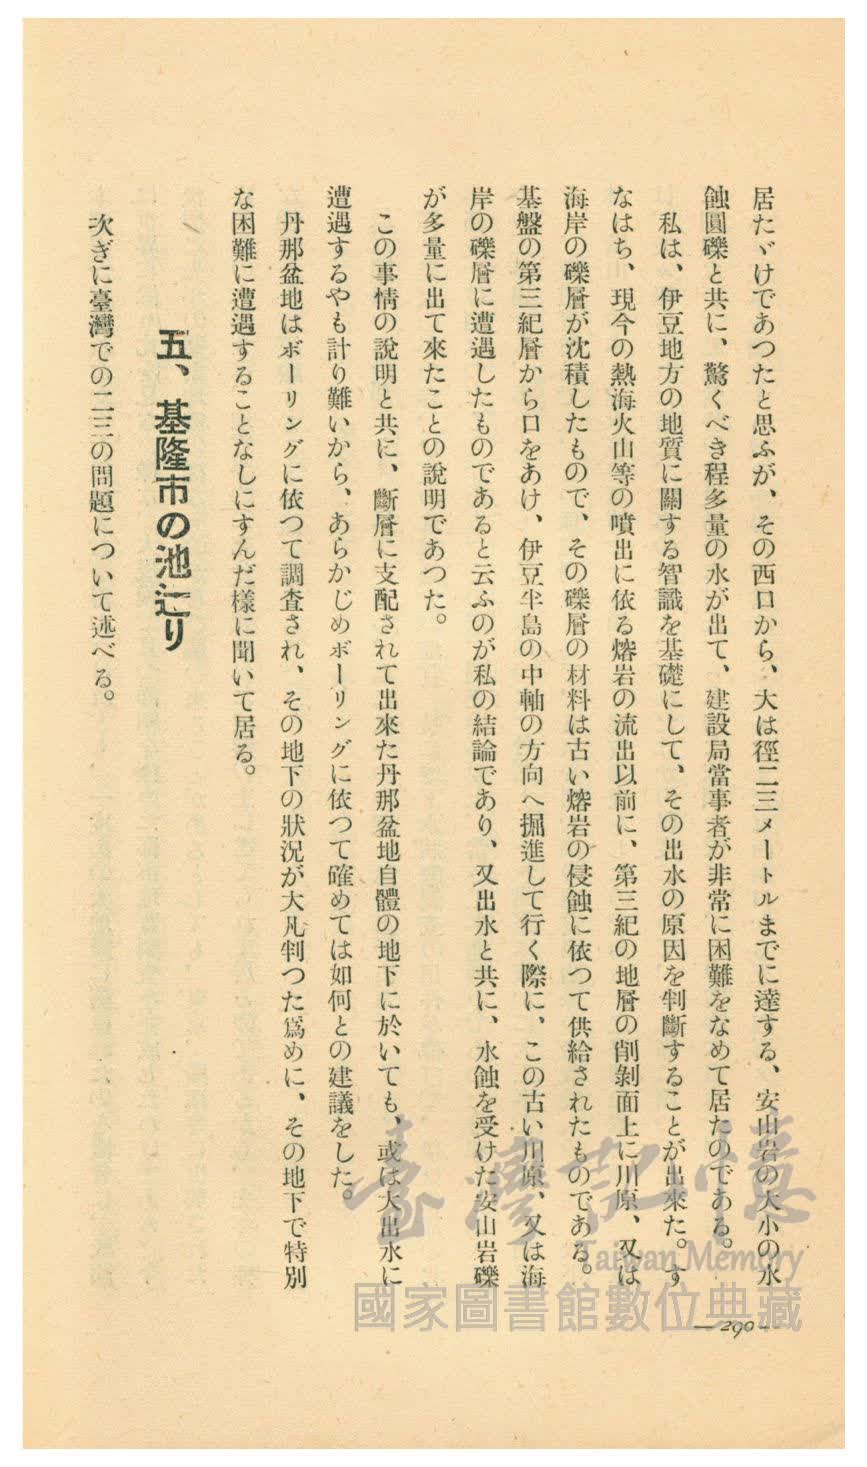 居たゞけであつたと思ふが、その西口から、大は徑二三メートルまでに達する、安山岩の大小の水
蝕圓礫と共に、驚くべき程多量の水が出て、建設局當事者が非常に困難をなめて居たのである。
私は、伊豆地方の地質に關する智識を基礎にして、その出水の原因を判斷することが出來た。す
なはち、現今の熱海火山等の噴出に依る熔岩の流出以前に、第三紀の地層の削剝面上に川原、又は
海岸の礫層が沈積したもので、その礫層の材料は古い熔岩の侵蝕に依つて供給されたものである。
基盤の第三紀層から口をあけ、伊豆半島の中軸の方向へ掘進して行く際に、この古い川原、又は海
岸の礫層に遭遇したものであると云ふのが私の結論であり、又出水と共に、水蝕を受けた安山岩礫
が多量に出て來たことの說明であつた。
この事情の說明と共に、斷層に支配されて出來た丹那盆地自體の地下に於いても、或は大出水に
遭遇するやも計り難いから、あらかじめボーリングに依つて確めては如何との建議をした。
丹那盆地はボーリングに依つて調査され、その地下の狀況が大凡判つた爲めに、その地下で特別
な困難に遭遇することなしにすんだ樣に聞いて居る。
五、基隆市の池辷り
次ぎに臺灣での二三の問題について述べる。
—290—
臺灣記憶
Taiwan Memory
國家圖書館數位典藏